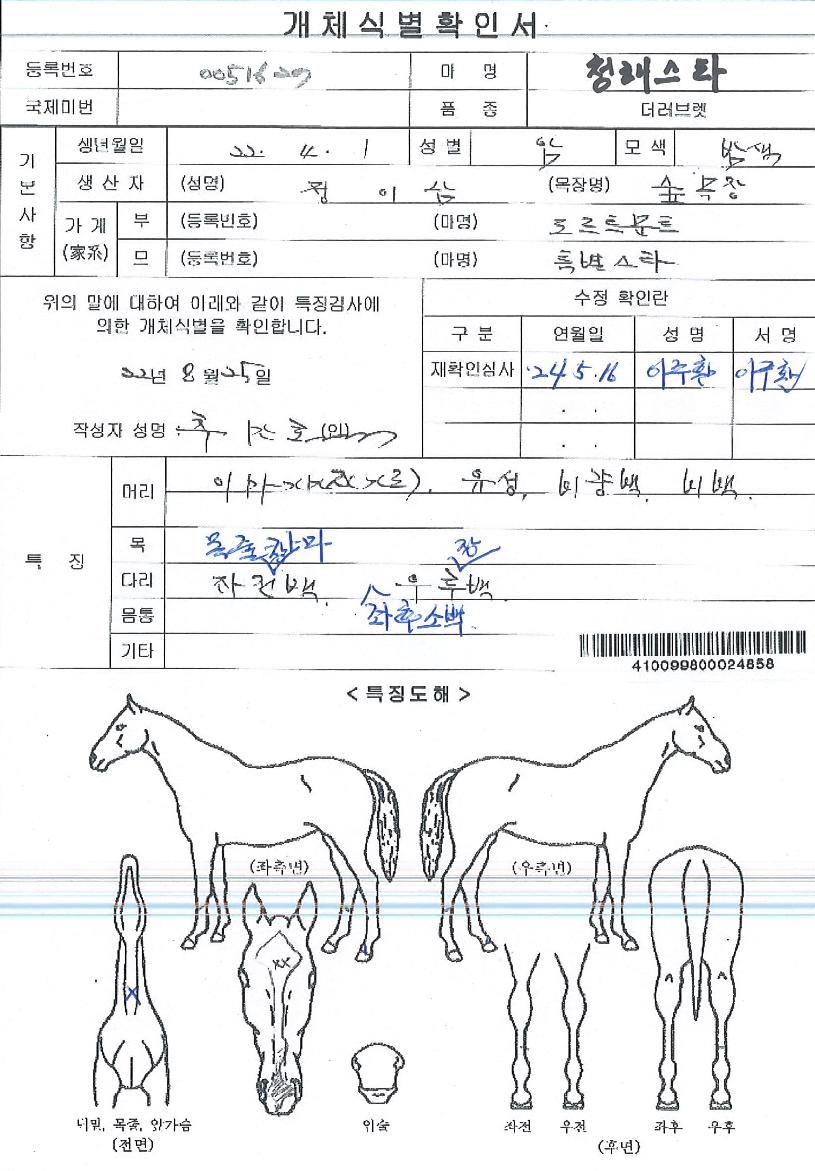 개체식별확인서
등록번호 0051629 마 명 청래스타
국제마번 품 종 더러브렛
기본사항
생년월일 22. 4. 1 성별 암 모색 밤색
생산자 (성명) 정이삼 (목장명) 숲목장
가계(家系) 부 (등록번호) (마명) 도르트문트
모 (등록번호) (마명) 특별스타
위의 말에 대하여 아래와 같이 특징검사에
의한 개체식별을 확인합니다.
22년 8월 25일
작성자 성명 (인)
수정 확인란
구 분 연월일 성 명 서 명
재확인심사 '24.5.16 이주환 이주환
특 징
머리 유성, 비량백, 비백
목
다리 좌전백, 우후백 장
몸통 좌후소백
기타
410099800024858
<특징도해>
(좌측면) (우측면)
XX
X
턱밑, 목줄, 앞가슴
(전면)
입술
좌전 우전 좌후 우후
(후면)